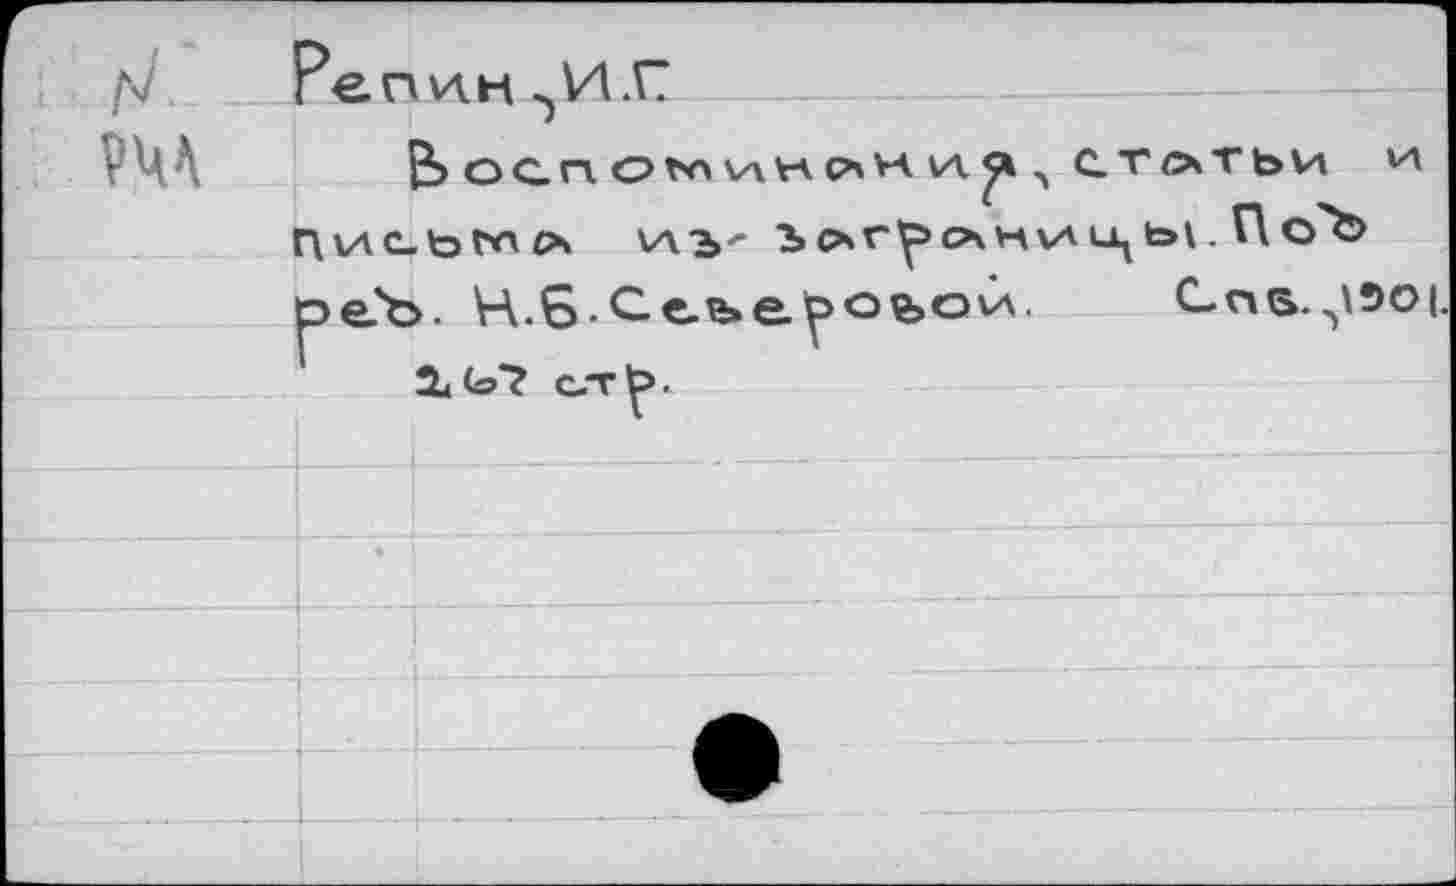 N Репин, И.Г.
РЧЛ Воспоминания, статьи и
письма изъ заграницы. Подъ
ред. Н.Б. Северовой. Спв., 1901.
267 стр.